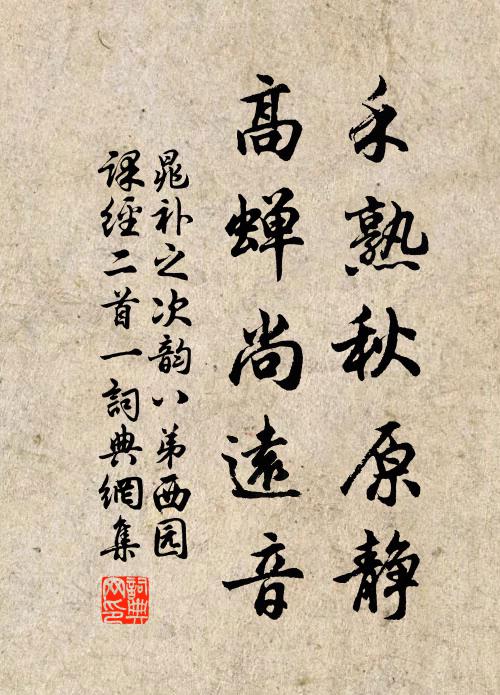 禾熟秋原静
高蝉尚遠音
晁补之次韵八弟西园
课經二首一詞典網集
詞典网印